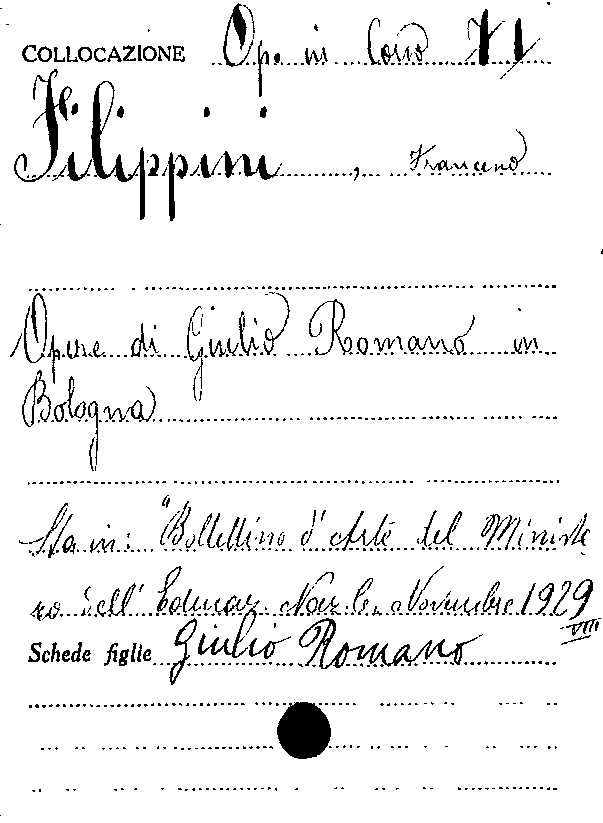 COLLOCAZIONE Op. in Corso
Filippini, Francesco
Opere di Giulio Romano in
Bologna
Sta in: "Bollettino d'Arte del Ministe
ro dell' Educaz. Naz.le, Novembre 1929
VIII
Schede figlie Giulio Romano